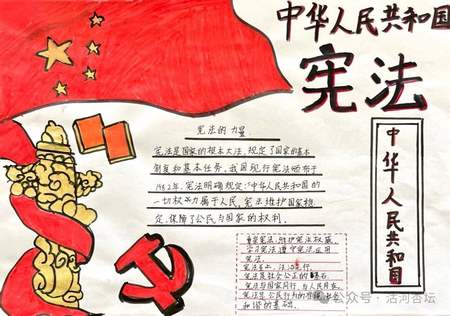 中华人民共和国
宪法
宪法的力量
宪法是国家的根本大法,规定了国家的基本
制度和基本任务。我国现行宪法颁布于
1982年,宪法明确规定:“中华人民共和国的
一切权力属于人民,宪法维护国家稳
定,保障了公民与国家的权利。
中华人民共和国
尊崇宪法,维护宪法权威。
学习宪法 遵守宪法 运用
宪法。
宪法至上,法
宪法是社会公正的基石
宪法与国家同行,与人民同在。
宪法是公民行为的
和谐的基础。
公众号 · 活河杏坛